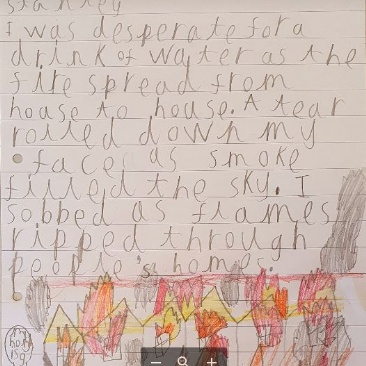 stanley
I was desperate for a
drink of water as the
fire spread from
house to house. A tear
rolled down my
face as smoke
filled the sky. I
sobbed as flames
ripped through
people's homes.